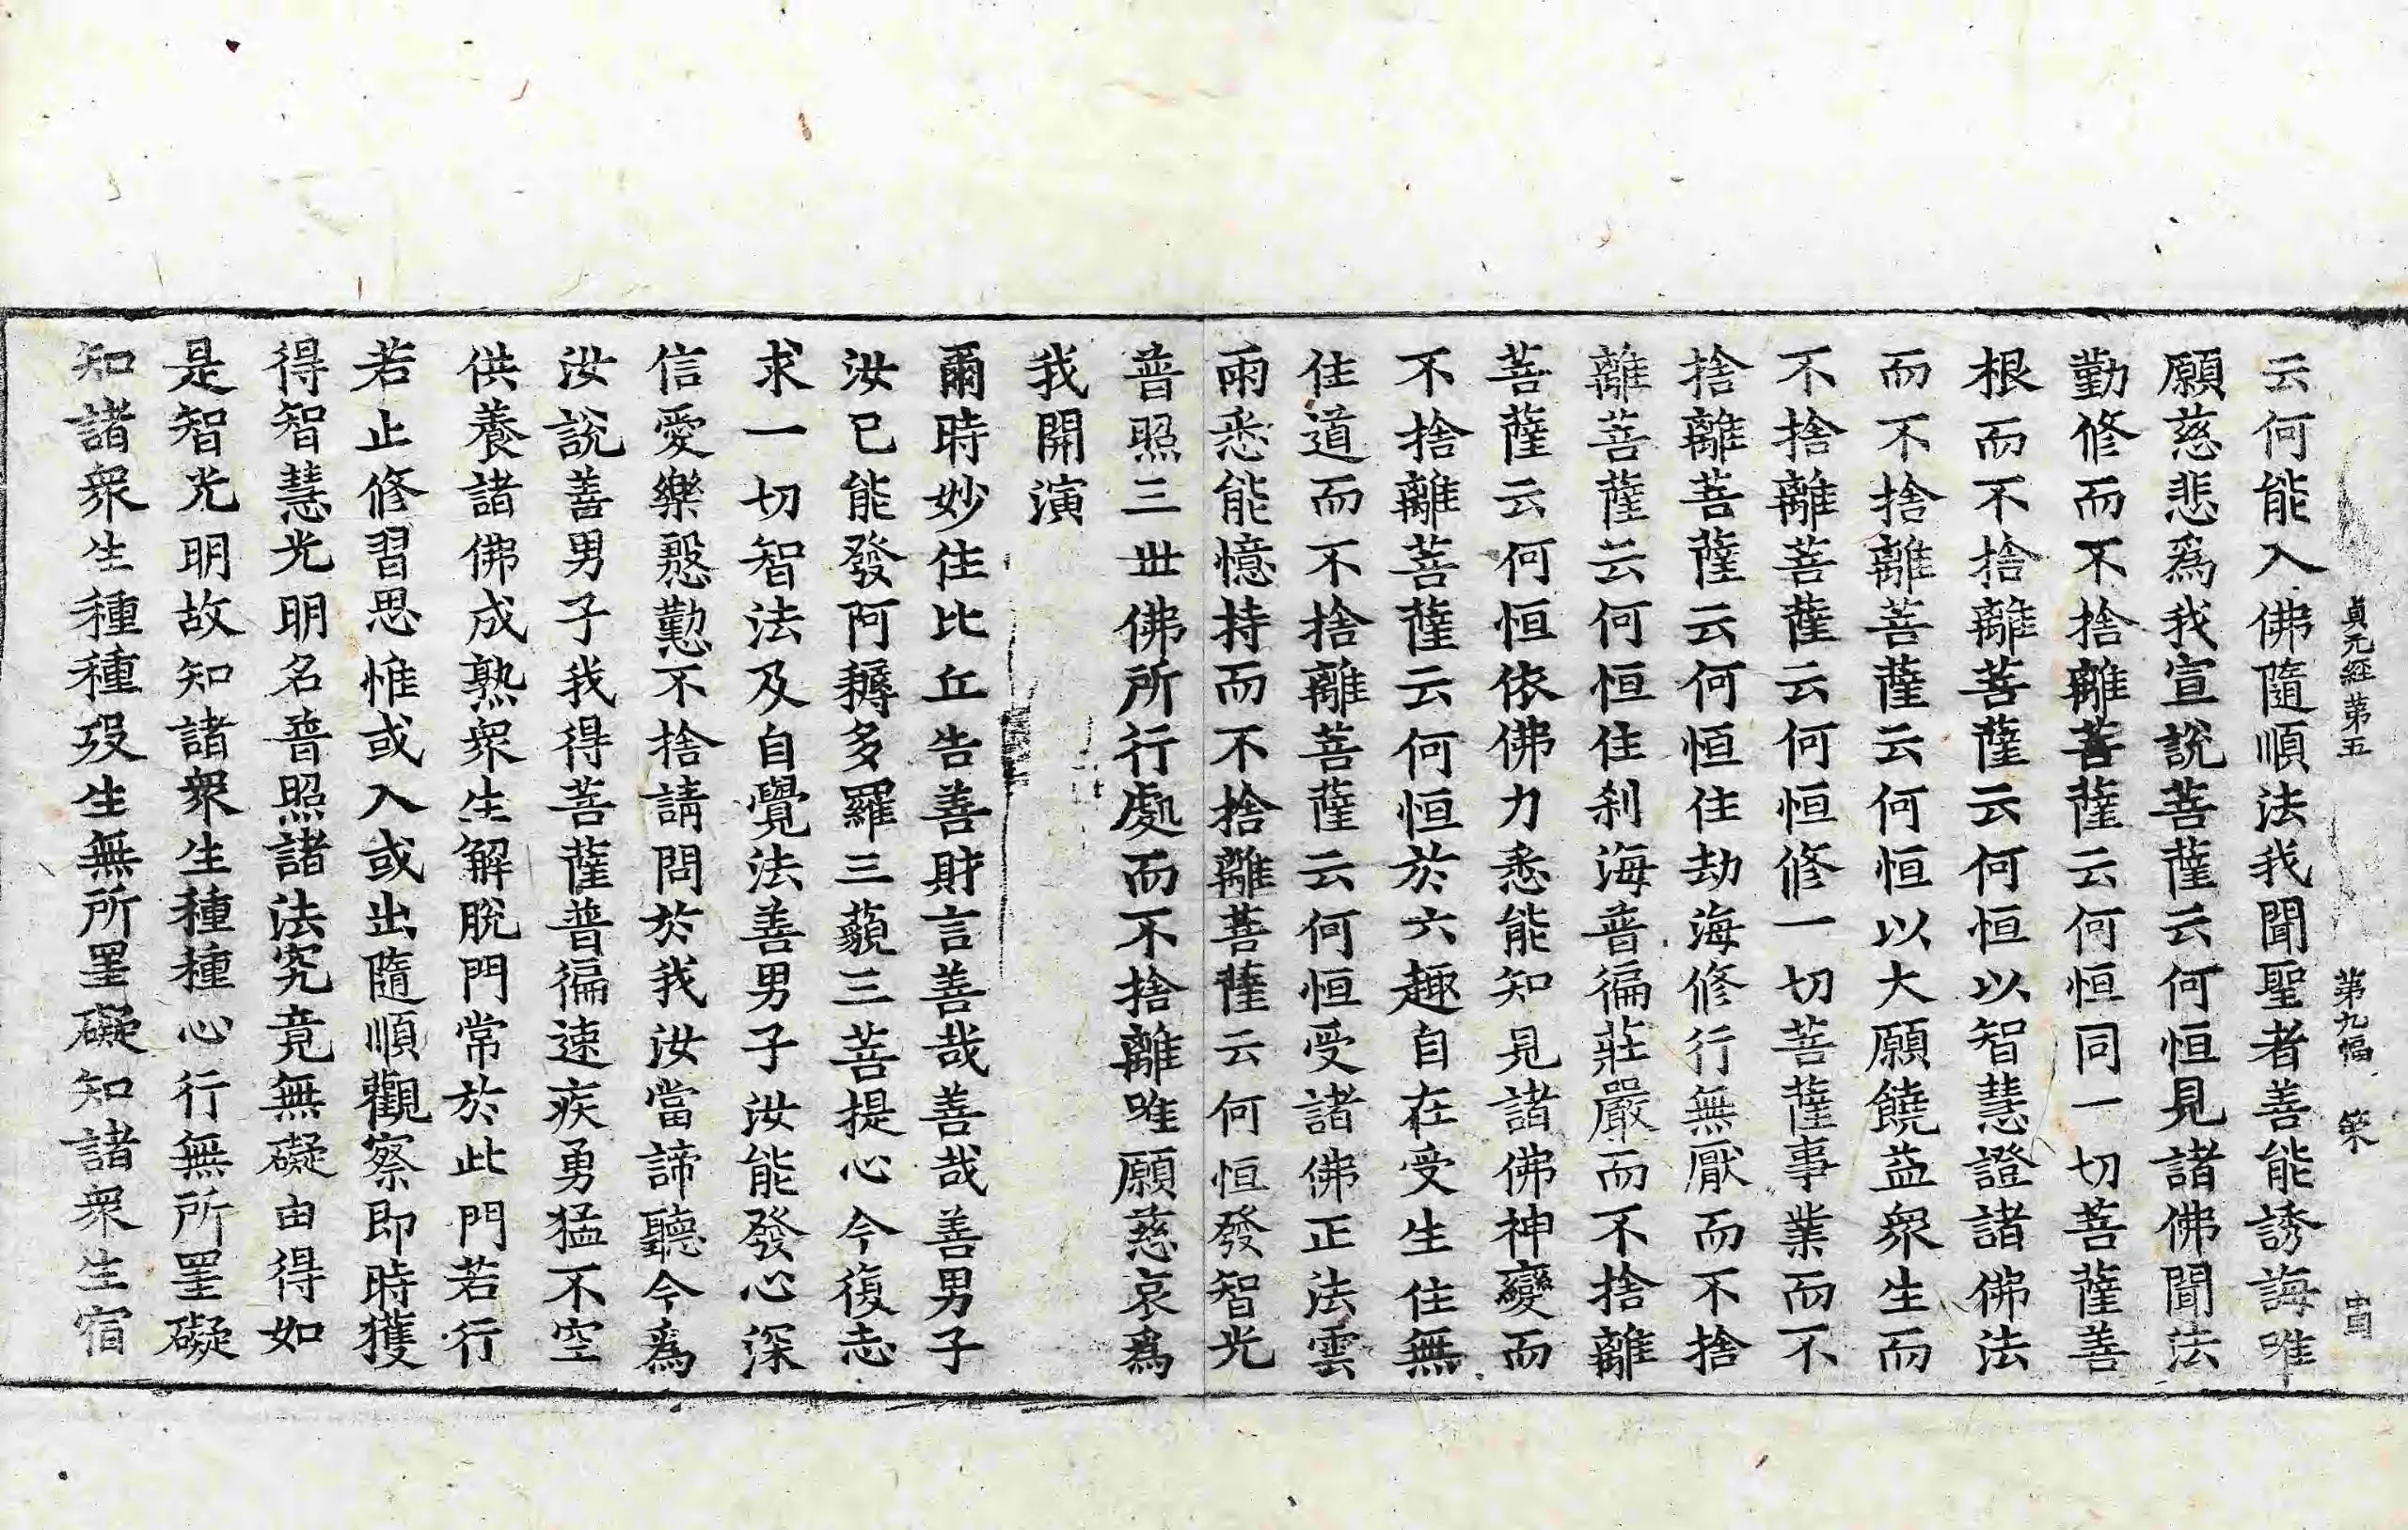 貞元経苐五 第九幅 䇿
云何能入佛隨順法我聞聖者善能誘誨唯
願慈悲爲我宣說菩薩云何恒見諸佛聞法
勤修而不捨離菩薩云何恒同一切菩薩善
根而不捨離菩薩云何恒以智慧證諸佛法
而不捨離菩薩云何恒以大願饒益衆生而
不捨離菩薩云何恒修一切菩薩事業而不
捨離菩薩云何恒住劫海修行無厭而不捨
離菩薩云何恒住刹海普徧莊嚴而不捨離
菩薩云何恒依佛力悉能知見諸佛神變而
不捨離菩薩云何恒於六趣自在受生住無
住道而不捨離菩薩云何恒受諸佛正法雲
雨悉能憶持而不捨離菩薩云何恒發智光
普照三世佛所行處而不捨離唯願慈哀爲
我開演
爾時妙住比丘告善財言善哉善哉善男子
汝已能發阿耨多羅三藐三菩提心今復志
求一切智法及自覺法善男子汝能發心深
信愛樂慇懃不捨請問於我汝當諦聽今爲
汝說善男子我得菩薩普徧速疾勇猛不空
供養諸佛成熟衆生解脫門常於此門若行
若止修習思惟或入或出隨順觀察即時獲
得智慧光明名普照諸法究竟無礙由得如
是智光明故知諸衆生種種心行無所罣礙
知諸衆生種種歿生無所罣礙知諸衆生宿